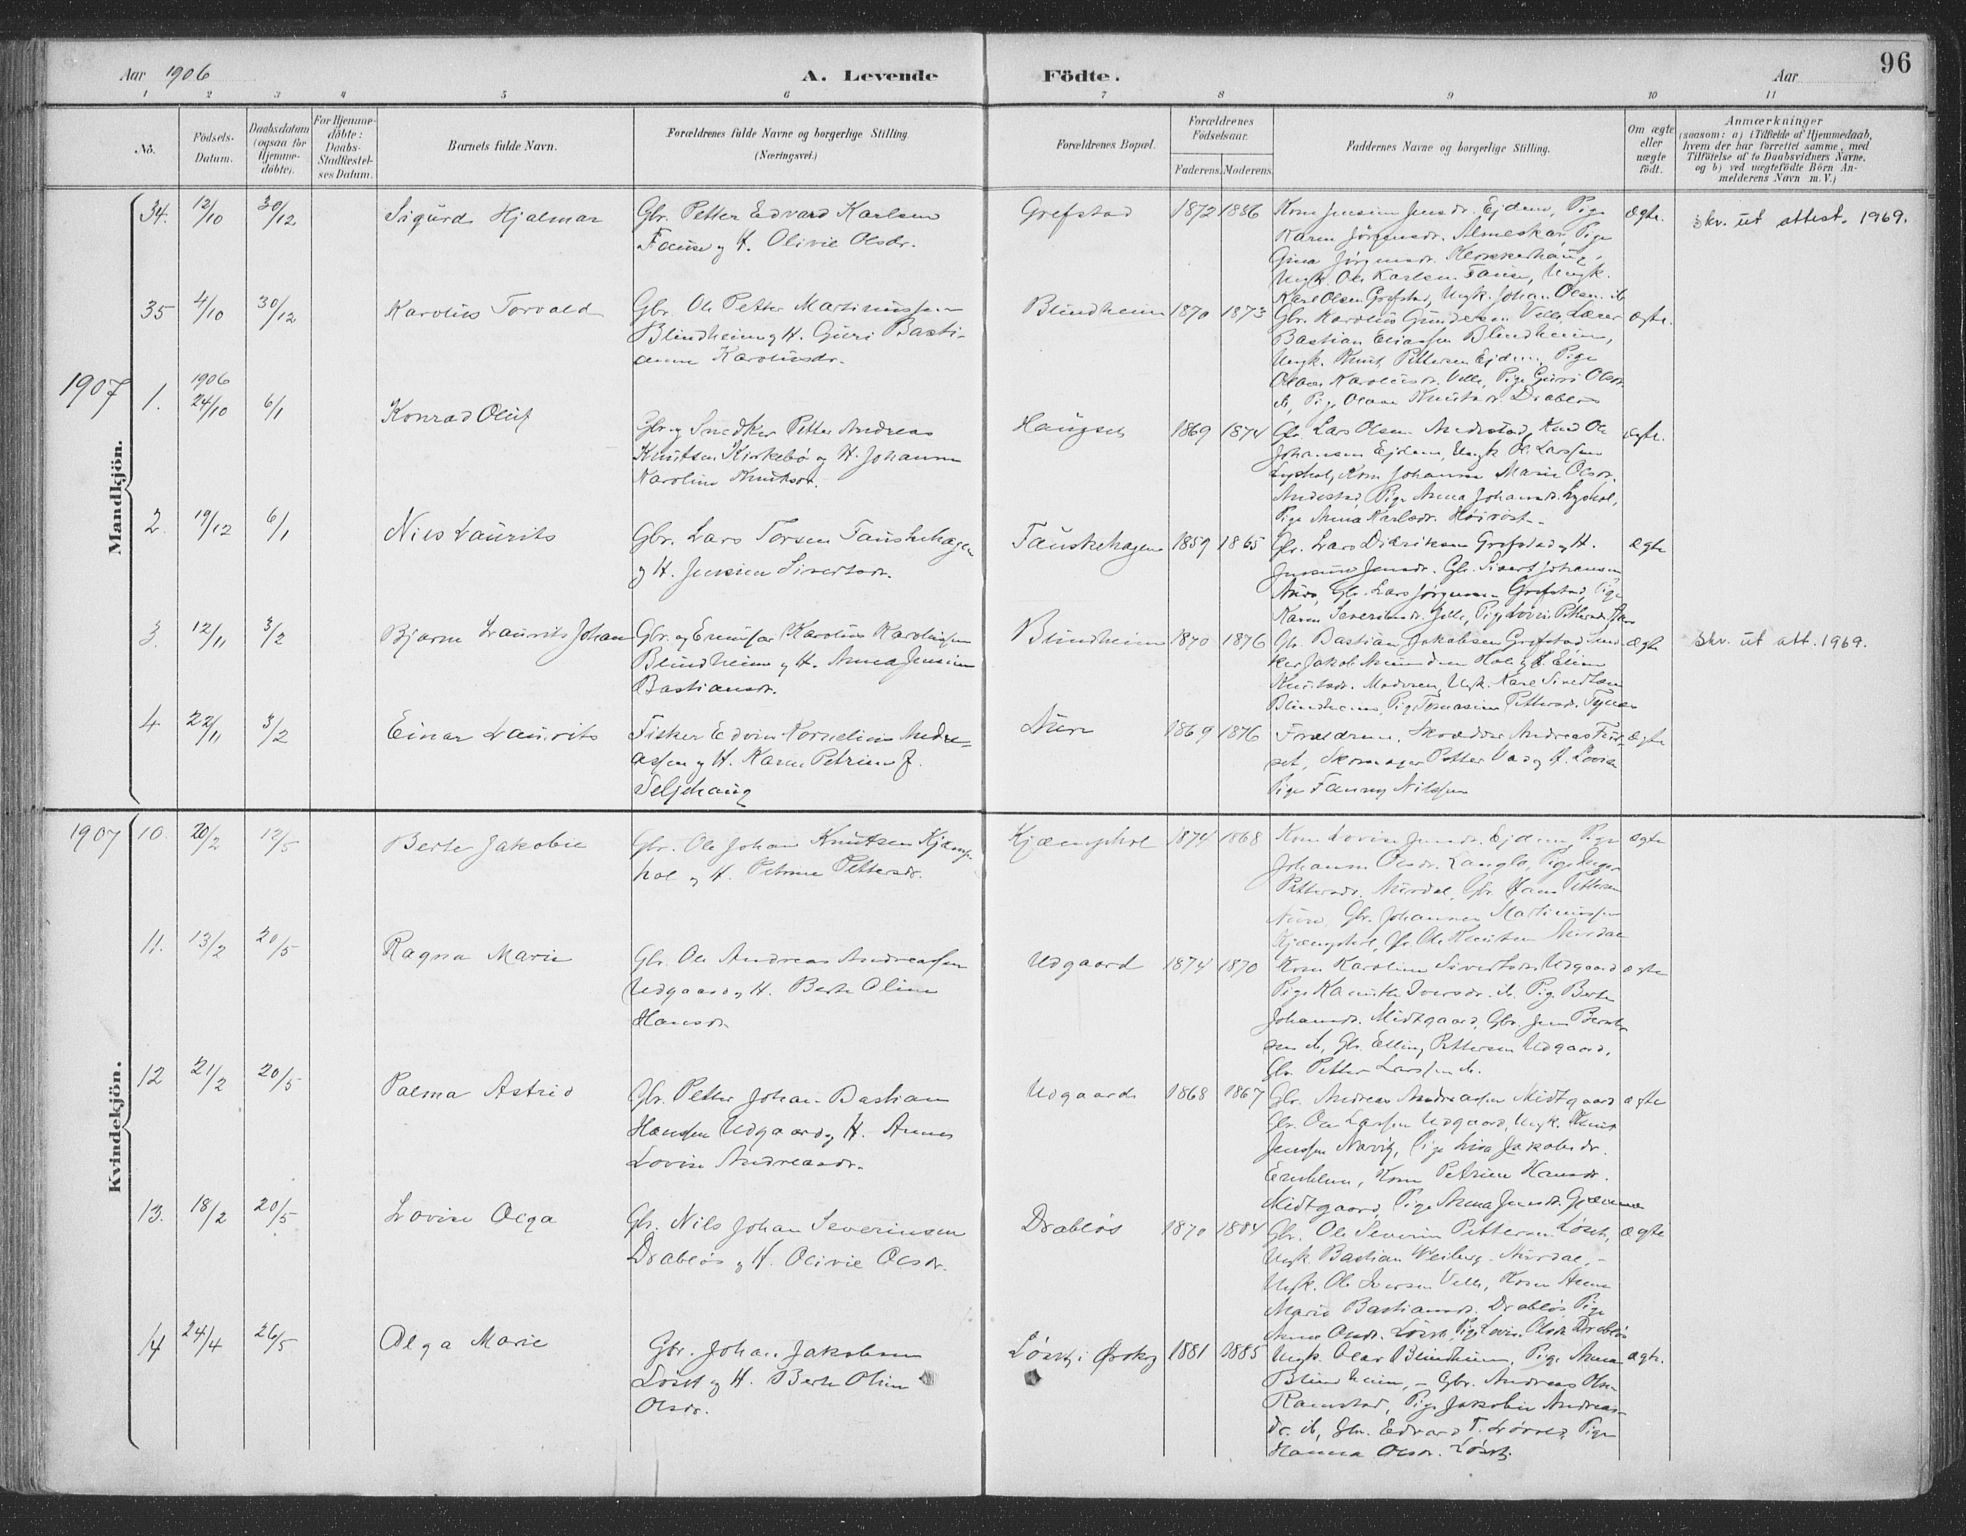 Aar 1906
A. Levende
Födte.
Aar
96
1 2 3 4 5 6 7 8 9 10 11
No.
Födsels-Datum.
Daabsdatum (ogsaa for Hjemme-döbte).
For Hjemme-döbte: Daabs-Stadfæstel-ses Datum.
Barnets fulde Navn.
Forældrenes fulde Navne og borgerlige Stilling.
(Næringsvei.)
Forældrenes Bopæl.
Forældrenes Födselsaar.
Faderens. Moderens.
Faddernes Navne og borgerlige Stilling.
Om ægte eller uægte födt.
Anmærkninger
(saasom: a) i Tilfælde af Hjemmedaab,
hvem der har forrettet samme, med
Tilföielse af to Daabsvidners Navne,
og b) ved uægtefödte Börn An-
melderens Navn m. V.)
Mandkjön.
34. 12/10 30/12 Sigurd Hjalmar
Gbr. Petter Edvard Karlsen
Fause og H. Olivie Olsdr.
Grefstad 1872 1886
Kone Jensine Jensdr. Ejdem, Pige
Karen Jörgensdr. Almeskar, Pige
Gina Jörgensdr. Klokkerhaug,
Ungk. Ole Karlsen Fause, Ungk.
Karl Olsen Grefstad, Ungk. Johan Olsen ib
ægte.
skv. ut attest. 1969.
35 4/10 30/12 Karolius Torvald
Gbr. Ole Petter Martinussen
Blindheim og H. Guri Basti-
anna Karoliusdr.
Blindheim 1870 1873
Gbr. Karolius Gundersen Velle, Lærer
Bastian Eliassen Blindheim,
Ungk. Knut Pettersen Ejdem, Pige
Olave Karoliusdr. Velle, Pige Guri Olsdr.
ib, Pige Olave Knutsdr. Drabløs
ægte.
1907
1. 1906 24/10 6/1 Konrad Oluf
Gbr. og Snedker Petter Andreas
Knutsen Kirkebö og H. Johanne
Karoline Knutsdr.
Haugset 1869 1874
Gbr. Lars Olsen Andestad,
Johansen Ejdem, Ungk. Ol. Larssen
Lyshol, Kone Johanne Marie Olsdr.
Andestad, Pige Anna Johansdr. Lyshol,
Pige Anna Karlsdr.
ægte.
2. 19/12 6/1 Nils Laurits
Gbr. Lars Torsen Fauskehagen
og H. Jensine Sivertsdr.
Fauskehagen 1859 1865
Gbr. Lars Didriksen Grefstad og H.
Jensine Jensdr. Gbr. Sivert Johansen
Gbr. Lars Jörgensen Grefstad, Pige
Karen Severinsdr. Velle, Pige Lovise Pettersdr.
ægte
3. 12/11 3/2 Bjarne Laurits Johan
Gbr. og Karolius Karoliussen
Blindheim og H. Anna Jensine
Bastiansdr.
Blindheim 1870 1876
Gbr. Bastian Jakobsen Grefstad, Sned-
ker Jakob
Knutsdr. Moderen, Ungk. Karl Sivertsen
Blindheim, Pige Tomasine Pettersdr.
ægte
skv. ut att. 1969.
4. 22/11 3/2 Einar Laurits
Fisker Edvin Kornelius Andre-
assen og H. Karen Petrine J.
Seljehaug
1869 1876
Forældrene, Skrædder Andreas Furs-
set, Skomager Petter Vad og H. Lovise
Pige Fanny Nilssen
ægte
Kvindekjön.
1907
10. 20/2 12/5 Berte Jakobie
Gbr. Ole Johan Knutsen Kjæmp-
hol og H. Petrine Pettersdr.
Kjæmphol 1874 1868
Kone Lovise Jensdr. Ejdem, Pige
Johanne Olsdr. Langlo, Pige Inger
Pettersdr. Aurdal, Gbr. Hans Pettersen
Gbr. Johannes Martinussen
Kjæmphol, Gbr. Ole Knutsen Aurdal
ægte
11. 13/2 20/5 Ragna Marie
Gbr. Ole Andreas Andreassen
Udgaard og H. Berte Oline
Hansdr.
Udgaard 1874 1870
Kone Karoline Sivertsdr. Udgaard
Pige Kanutte Iversdr. ib. Pige Berte
Johansdr. Midtgaard, Gbr. Jens Bernt-
sen ib, Gbr. Elling Pettersen Udgaard,
Gbr. Petter Larssen ib.
ægte
12 21/2 20/5 Palma Astrid
Gbr. Petter Johan Bastian
Hanssen Udgaard og H. Anne
Lovise Andreasdr.
Udgaard 1868 1867
Gbr. Andreas Andreassen Midtgaard
Gbr. Ole Larssen Udgaard, Ungk. Knut
Jenssen Pige Lina Jakobsdr.
Kone Petrine Hansdr.
Midtgaard, Pige Anna Jensdr.
ægte
13. 18/2 20/5 Lovise Olga
Gbr. Nils Johan Severinsen
Drabløs og H. Olivie Olsdr.
Drabløs 1870 1884
Gbr. Ole Severin Pettersen Løset,
Ungk. Bastian Weiberg Aurdal,
Ungk. Ole Iversen Velle, Kone Anne
Marie Bastiansdr. Drabløs, Pige
Anne Olsdr. Løset, Pige Lovise Olsdr. Drabløs
ægte
14 24/4 26/5 Olga Marie
Gbr. Johan Jakobsen
Løset og H. Berte Oline
Olsdr.
Løset i Ørskog 1881 1885
Ungk. Olav Blindheim, Pige Anna
Blindheim, - Gbr. Andreas Ols.
Ramstad, Pige Jakobie Andreas-
dr. ib, Gbr. Edvard T. Pige
Hanna Olsdr. Løset.
ægte.